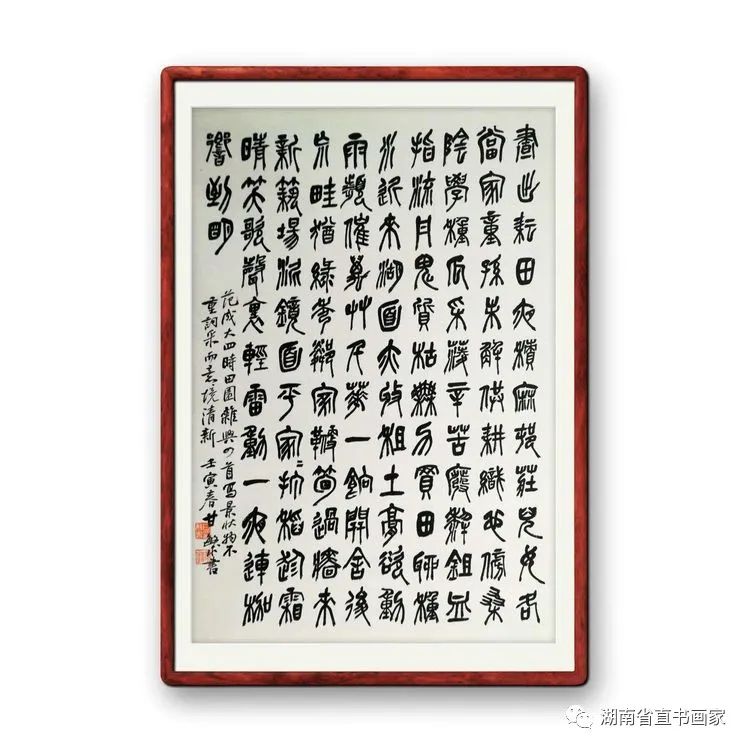 晝出耘田夜績麻村莊兒女各
當家童孫未解供耕織也傍桑
陰學種瓜采菱辛苦廢犁鉏血
指流丹鬼質枯無力買田聊種
水近來湖面亦收租土膏欲動
雨頻催萬艸千華一餉開舍後
荒畦猶綠秀鄰家鞭筍過牆來
新築場泥鏡面平家〻打稻趁霜
晴笑歌聲裏輕雷動一夜連枷
響到明
范成大四時田園雜興四首寫景狀物不
重詞采而意境清新 壬寅春甘書
湖南省直书画家